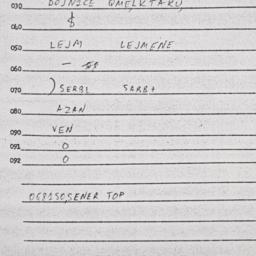 030 DOJNICE QMELKTAKU
040 $
050 LEJM LEJMENE
060 –
070 ) SERBL SARB+
080 AZAN
090 VEN
091 O
092 O
068150,SENER TOP